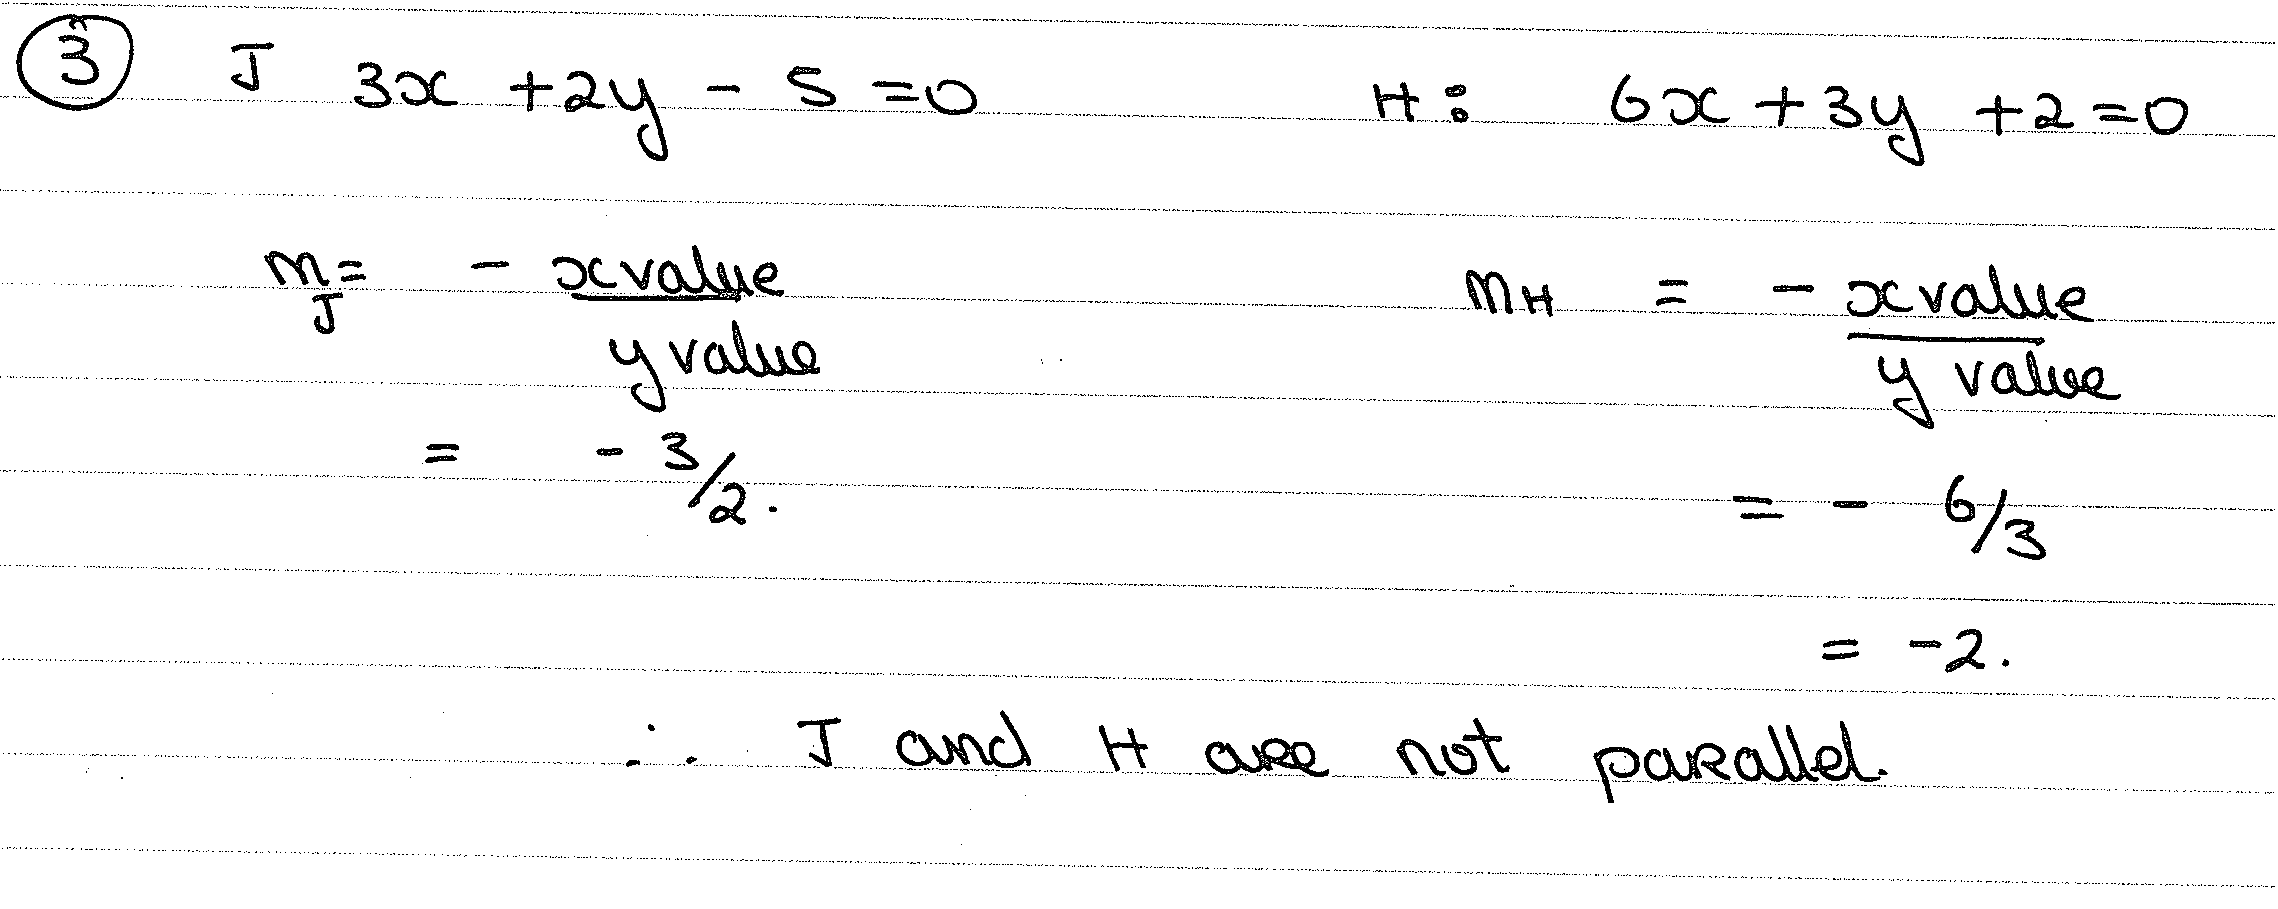 3 J 3x + 2y - 5 = 0 H: 6x + 3y + 2 = 0
mJ = - x value / y value mH = - x value / y value
= - 3/2. = - 6/3
= -2.
∴ J and H are not parallel.